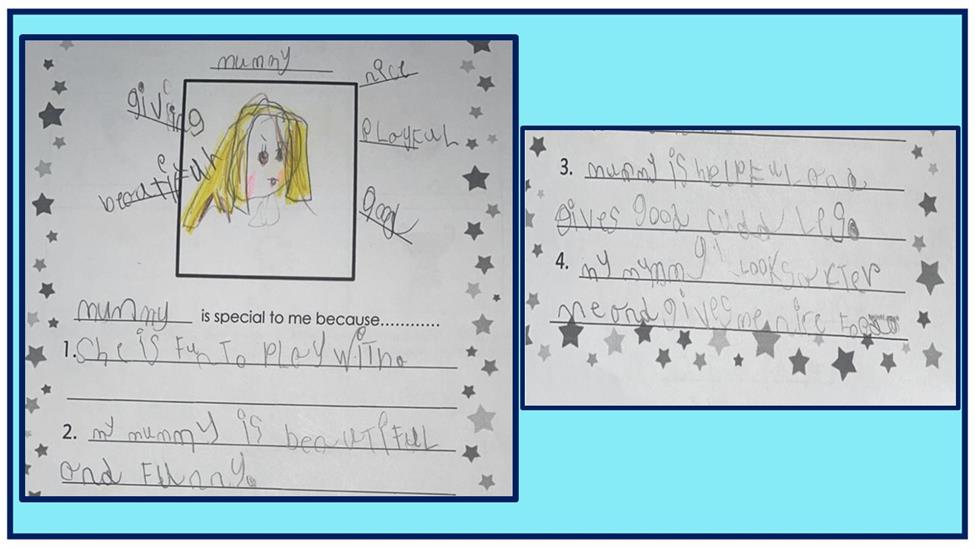 mummy
nice
giving
PLAYFUL
beautiful
good
mummy is special to me because............
1. She is FUN To PLAY WiTh.
2. my mummy is beaUTiFUL
and FUnny.
3. mummy is helPFUL and
gives good
4. my mummy LOOKS
me and gives me nice